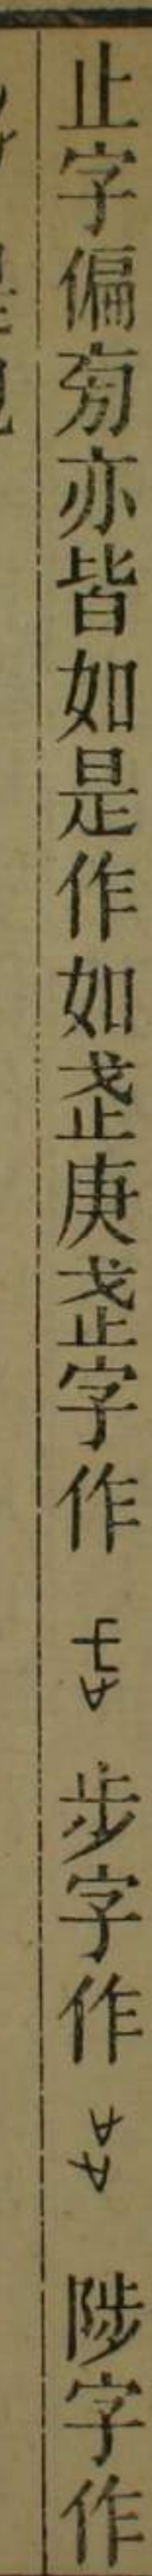 止字偏旁亦皆如是作如𢧜庚𢧜字作 步字作 陟字作